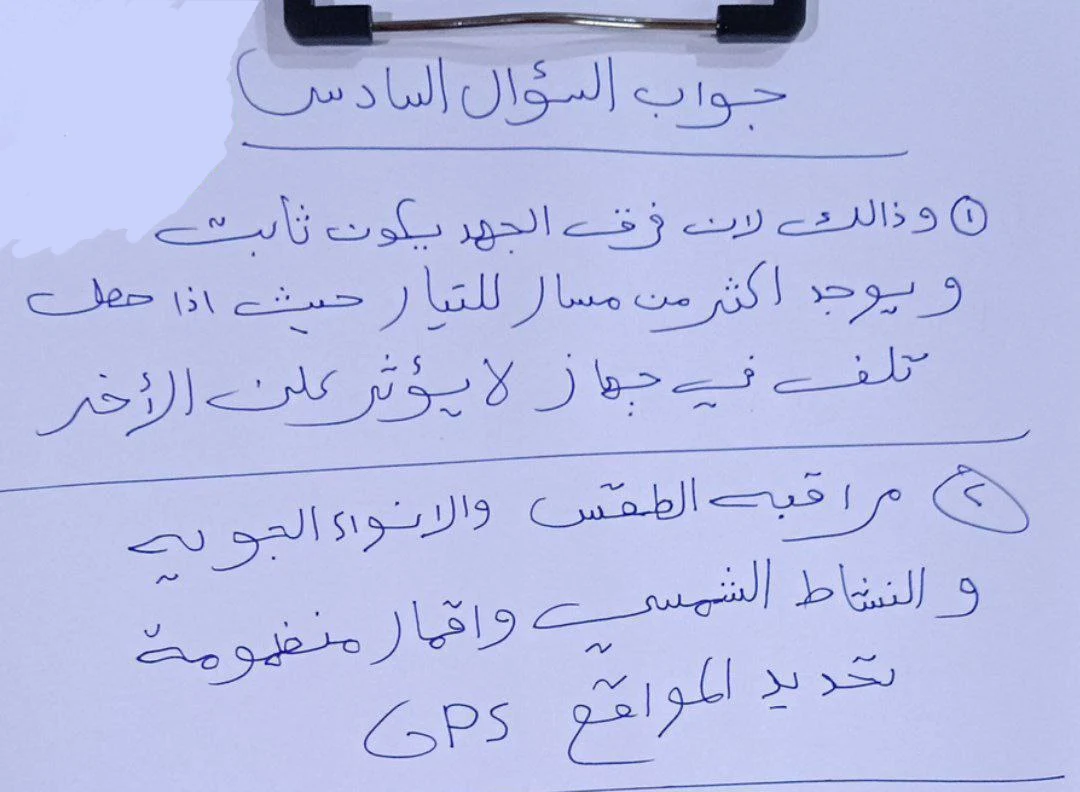 جواب السؤال السادس
① وذالك لان فرق الجهد يكون ثابت
ويوجد اكثر من مسار للتيار حيث اذا حصل
تلف في جهاز لا يؤثر على الأخر
② مراقبه الطقس والانواء الجويه
والنشاط الشمسي واقمار منظمومة
تحديد المواقع GPS